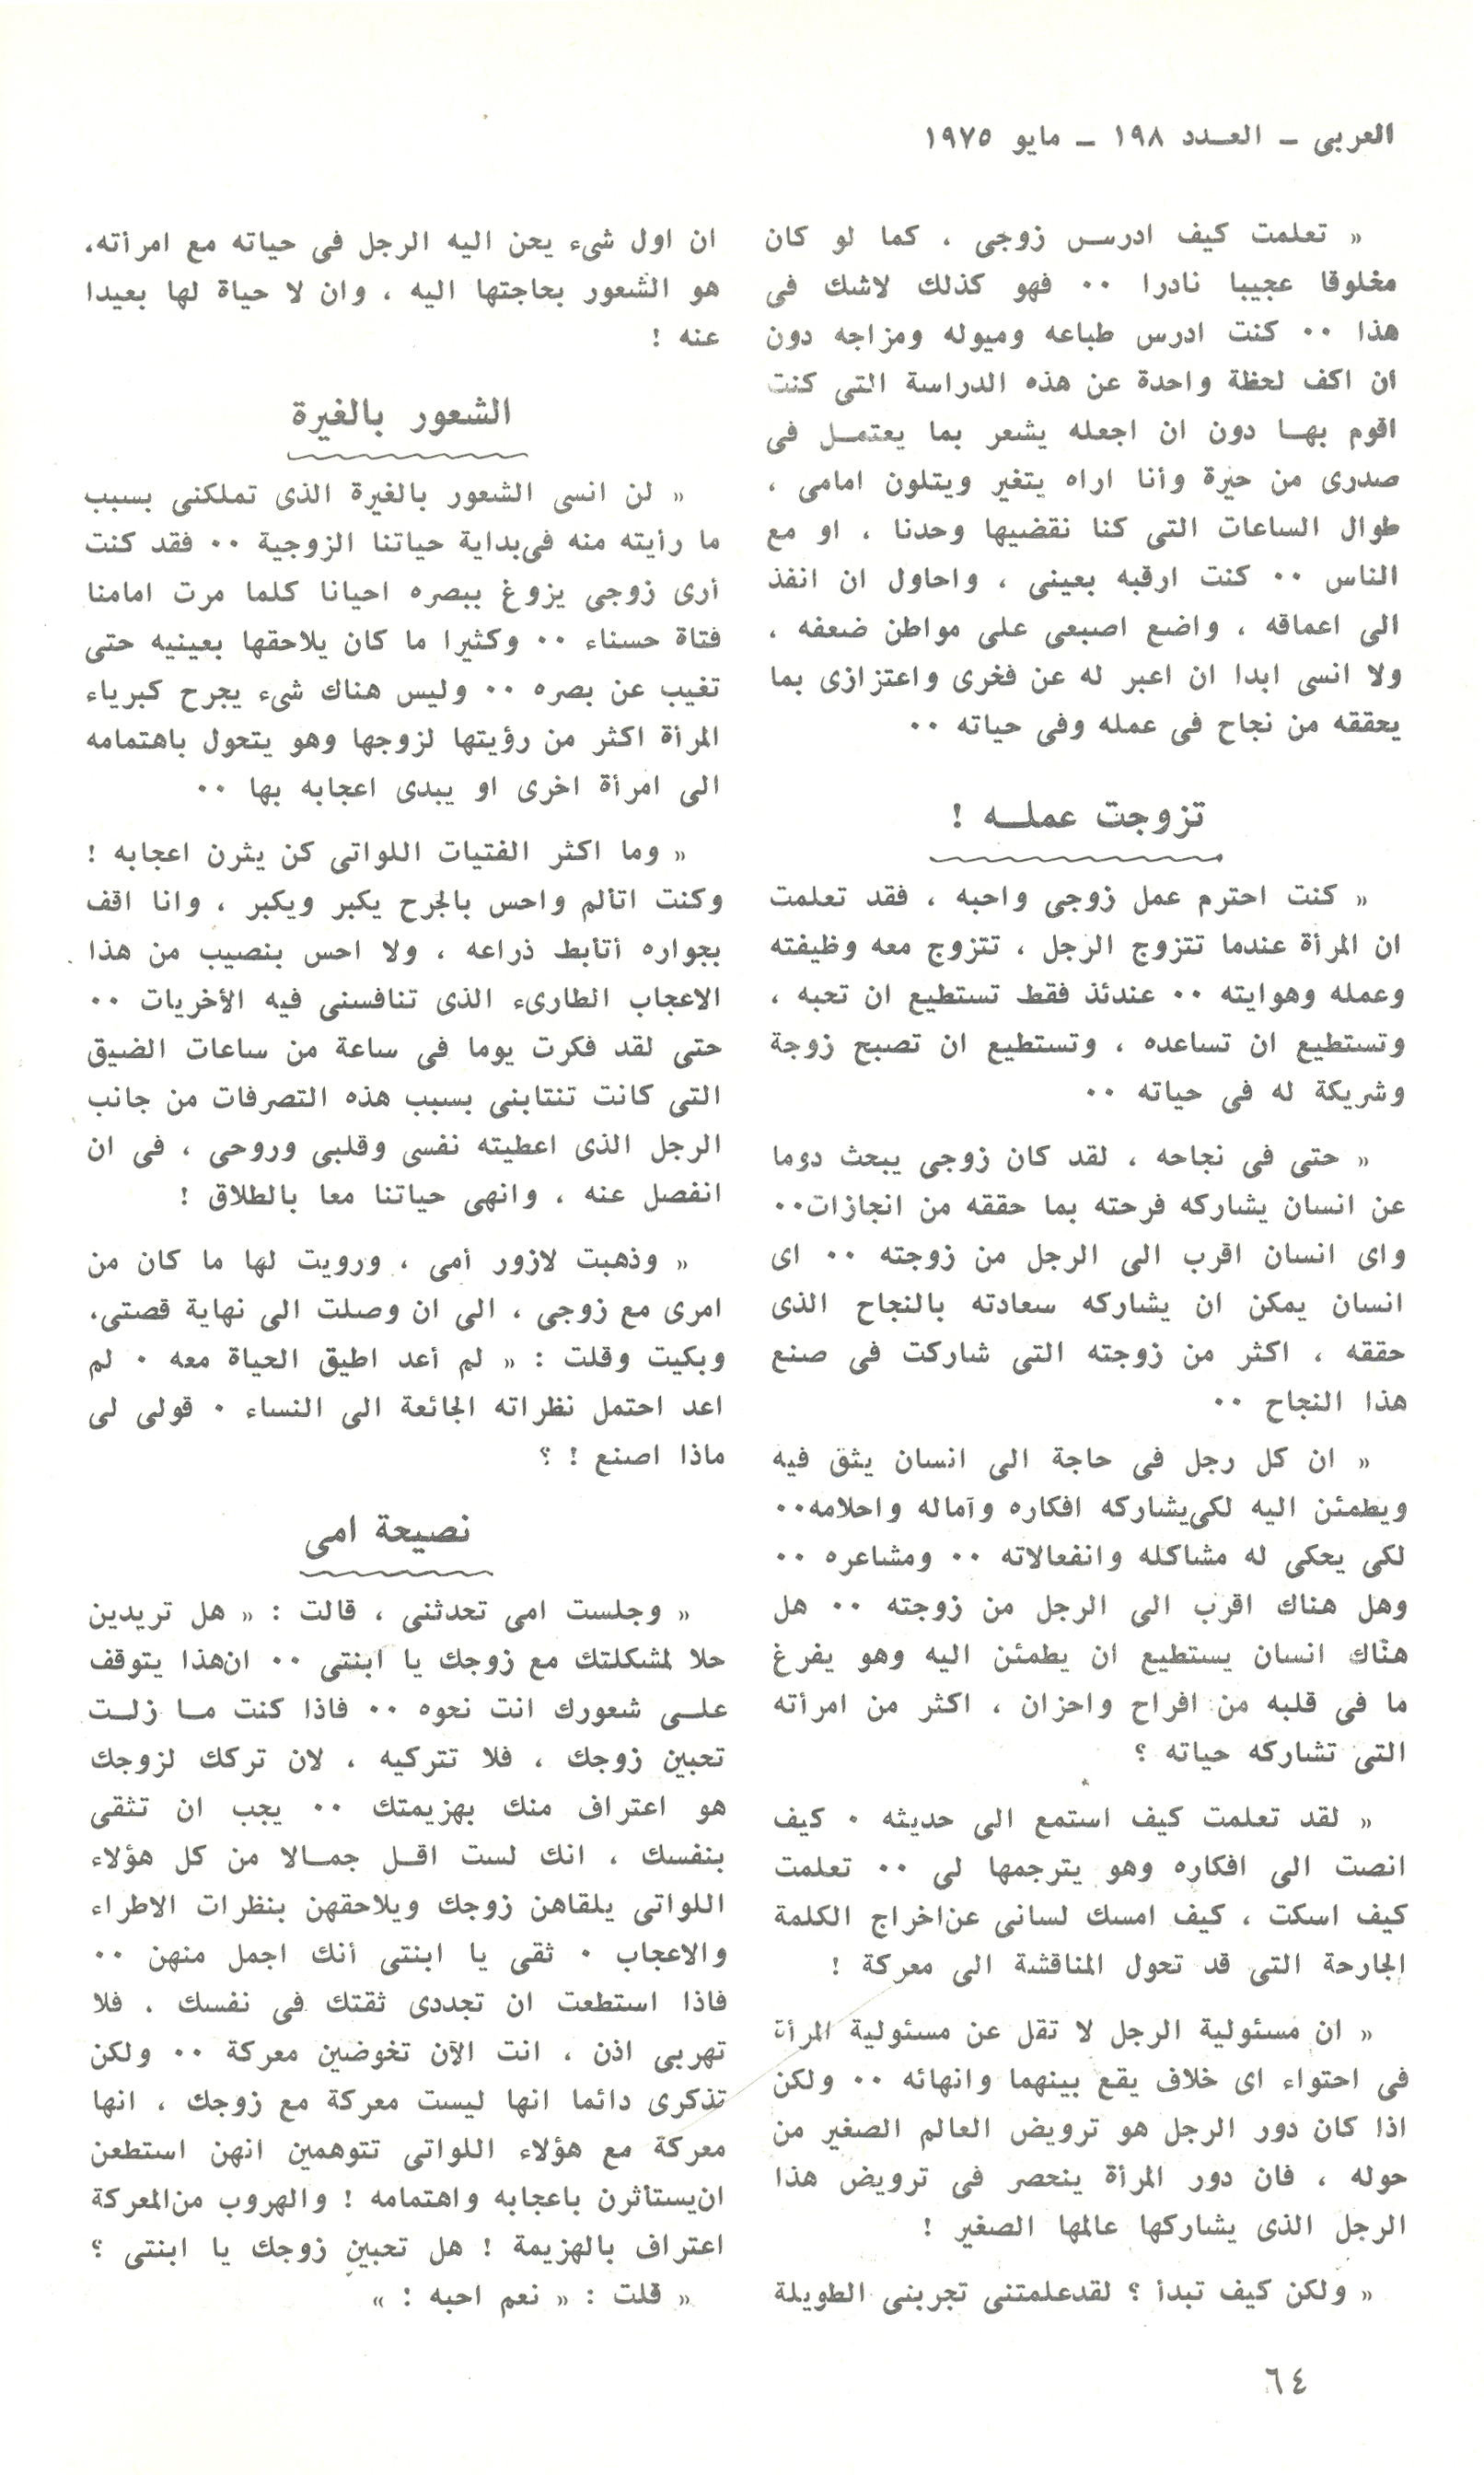 العربى ـ العـدد ١٩٨ ـ مايو ١٩٧٥
« تعلمت كيف ادرس زوجى ، كما لو كان
مخلوقا عجيبا نادرا ٠٠ فهو كذلك لاشك فى
هذا ٠٠ كنت ادرس طباعه وميوله ومزاجه دون
ان اكف لحظة واحدة عن هذه الدراسة التى كنت
اقوم بهـا دون ان اجعله يشعر بما يعتمـل فى
صدرى من حيرة وأنا اراه يتغير ويتلون امامى ،
طوال الساعات التى كنا نقضيها وحدنا ، او مع
الناس ٠٠ كنت ارقبه بعينى ، واحاول ان انفذ
الى اعماقه ، واضع اصبعى على مواطن ضعفه ،
ولا انسى ابدا ان اعبر له عن فخرى واعتزازى بما
يحققه من نجاح فى عمله وفى حياته ٠٠
تزوجت عملـه !
« كنت احترم عمل زوجى واحبه ، فقد تعلمت
ان المرأة عندما تتزوج الرجل ، تتزوج معه وظيفته
وعمله وهوايته ٠٠ عندئذ فقط تستطيع ان تحبه ،
وتستطيع ان تساعده ، وتستطيع ان تصبح زوجة
وشريكة له فى حياته ٠٠
« حتى فى نجاحه ، لقد كان زوجى يبحث دوما
عن انسان يشاركه فرحته بما حققه من انجازات٠٠
واى انسان اقرب الى الرجل من زوجته ٠٠ اى
انسان يمكن ان يشاركه سعادته بالنجاح الذى
حققه ، اكثر من زوجته التى شاركت فى صنع
هذا النجاح ٠٠
« ان كل رجل فى حاجة الى انسان يثق فيه
ويطمئن اليه لكى‌يشاركه افكاره وآماله واحلامه٠٠
لكى يحكى له مشاكله وانفعالاته ٠٠ ومشاعره ٠٠
وهل هناك اقرب الى الرجل من زوجته ٠٠ هل
هناك انسان يستطيع ان يطمئن اليه وهو يفرغ
ما فى قلبه من افراح واحزان ، اكثر من امرأته
التى تشاركه حياته ؟
« لقد تعلمت كيف استمع الى حديثه ٠ كيف
انصت الى افكاره وهو يترجمها لى ٠٠ تعلمت
كيف اسكت ، كيف امسك لسانى عن‌اخراج الكلمة
الجارحة التى قد تحول المناقشة الى معركة !
« ان مسئولية الرجل لا تقل عن مسئولية المرأة
فى احتواء اى خلاف يقع بينهما وانهائه ٠٠ ولكن
اذا كان دور الرجل هو ترويض العالم الصغير من
حوله ، فان دور المرأة ينحصر فى ترويض هذا
الرجل الذى يشاركها عالمها الصغير !
« ولكن كيف تبدأ ؟ لقدعلمتنى تجربتى الطويلة
ان اول شىء يحن اليه الرجل فى حياته مع امرأته،
هو الشعور بحاجتها اليه ، وان لا حياة لها بعيدا
عنه !
الشعور بالغيرة
« لن انسى الشعور بالغيرة الذى تملكنى بسبب
ما رأيته منه فى‌بداية حياتنا الزوجية ٠٠ فقد كنت
أرى زوجى يزوغ ببصره احيانا كلما مرت امامنا
فتاة حسناء ٠٠ وكثيرا ما كان يلاحقها بعينيه حتى
تغيب عن بصره ٠٠ وليس هناك شىء يجرح كبرياء
المرأة اكثر من رؤيتها لزوجها وهو يتحول باهتمامه
الى امرأة اخرى او يبدى اعجابه بها ٠٠
« وما اكثر الفتيات اللواتى كن يثرن اعجابه !
وكنت اتألم واحس بالجرح يكبر ويكبر ، وانا اقف
بجواره أتأبط ذراعه ، ولا احس بنصيب من هذا
الاعجاب الطارىء الذى تنافسنى فيه الأخريات ٠٠
حتى لقد فكرت يوما فى ساعة من ساعات الضيق
التى كانت تنتابنى بسبب هذه التصرفات من جانب
الرجل الذى اعطيته نفسى وقلبى وروحى ، فى ان
انفصل عنه ، وانهى حياتنا معا بالطلاق !
« وذهبت لازور أمى ، ورويت لها ما كان من
امرى مع زوجى ، الى ان وصلت الى نهاية قصتى،
وبكيت وقلت : « لم أعد اطيق الحياة معه ٠ لم
اعد احتمل نظراته الجائعة الى النساء ٠ قولى لى
ماذا اصنع ! ؟
نصيحة امى
« وجلست امى تحدثنى ، قالت : « هل تريدين
حلا لمشكلتك مع زوجك يا ابنتى ٠٠ ان‌هذا يتوقف
علـى شعورك انت نحوه ٠٠ فاذا كنت مـا زلـت
تحبين زوجك ، فلا تتركيه ، لان تركك لزوجك
هو اعتراف منك بهزيمتك ٠٠ يجب ان تثقى
بنفسك ، انك لست اقـل جمـالا من كل هؤلاء
اللواتى يلقاهن زوجك ويلاحقهن بنظرات الاطراء
والاعجاب ٠ ثقى يا ابنتى أنك اجمل منهن ٠٠
فاذا استطعت ان تجددى ثقتك فى نفسك ، فلا
تهربى اذن ، انت الآن تخوضين معركة ٠٠ ولكن
تذكرى دائما انها ليست معركة مع زوجك ، انها
معركة مع هؤلاء اللواتى تتوهمين انهن استطعن
ان‌يستأثرن باعجابه واهتمامه ! والهروب من‌المعركة
اعتراف بالهزيمة ! هل تحبين زوجك يا ابنتى ؟
« قلت : « نعم احبه ! »
٦٤